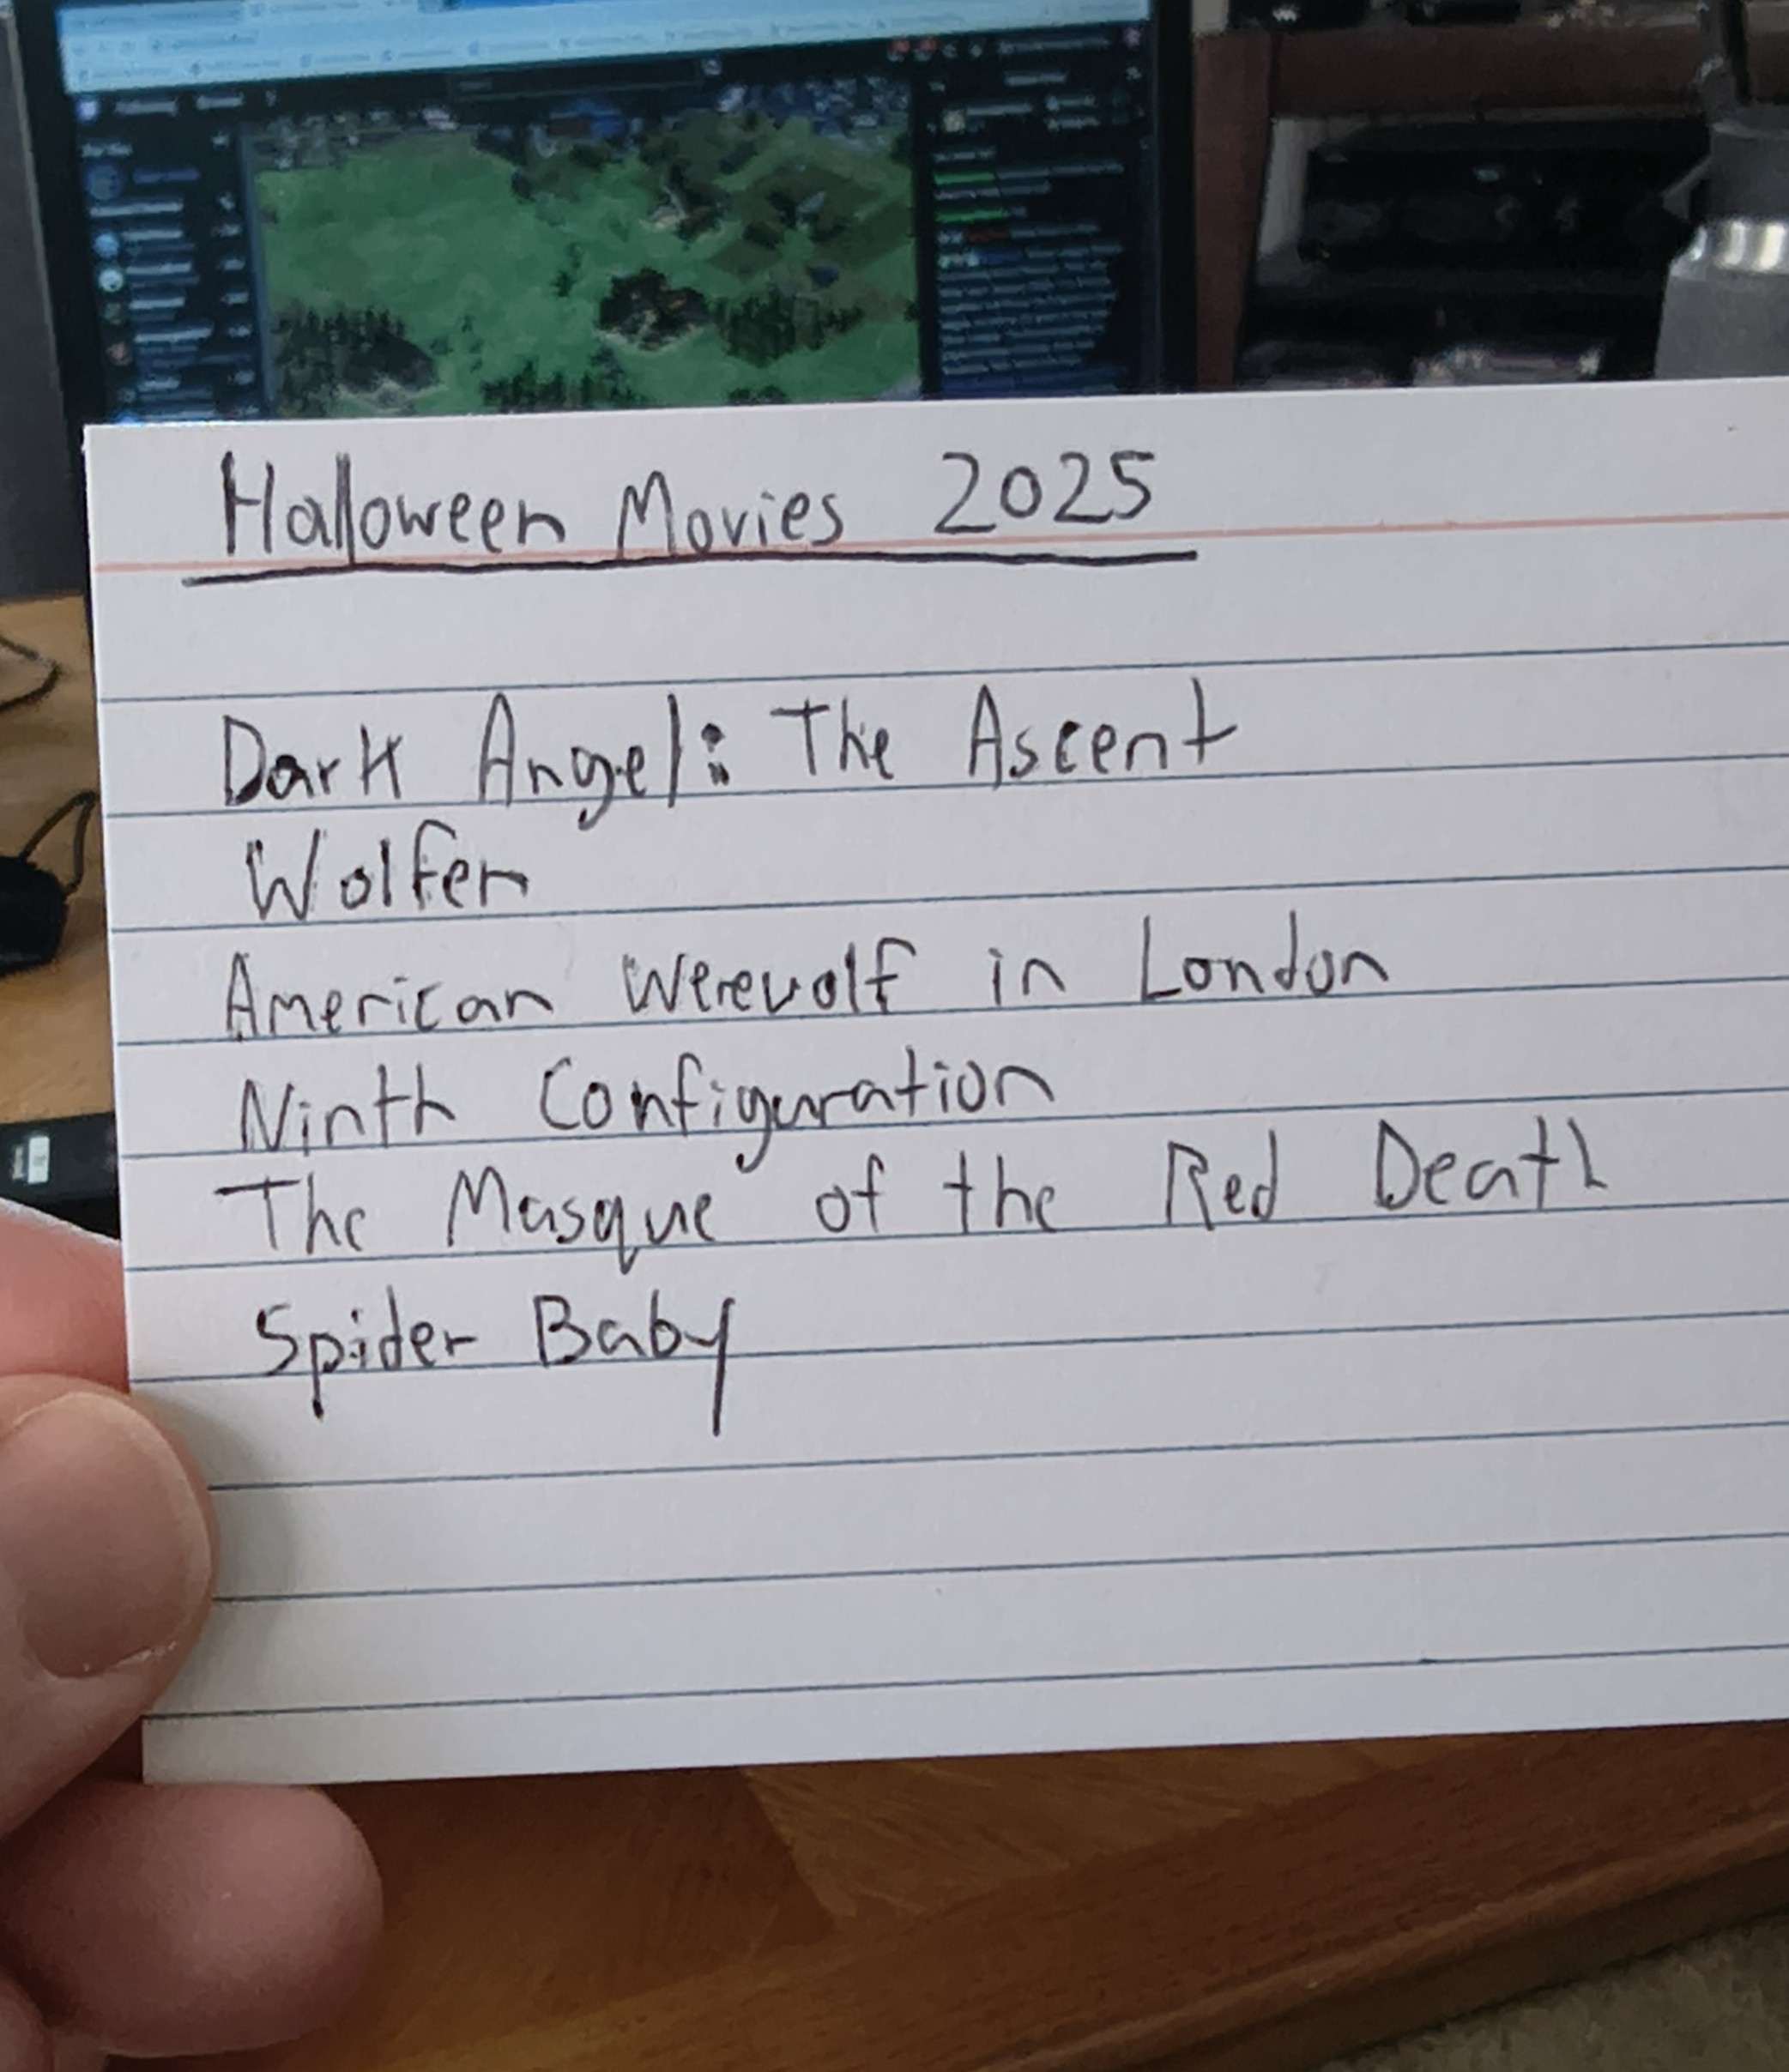 Halloween Movies 2025
Dark Angel: The Ascent
Wolfen
American Werewolf in London
Ninth Configuration
The Masque of the Red Death
Spider Baby